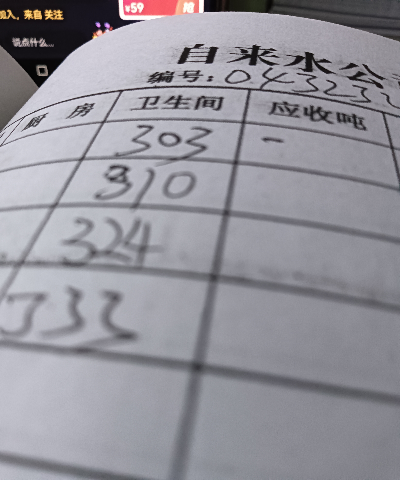 加入，来自 关注
¥59
抢
说点什么...
自来水公
编号：043232
厨 房 卫生间 应收吨
303 -
310
324
333